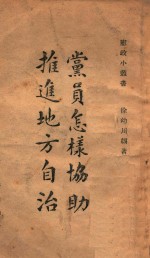 政小叢書
徐幼川編著
黨員怎樣協助
推進地方自治